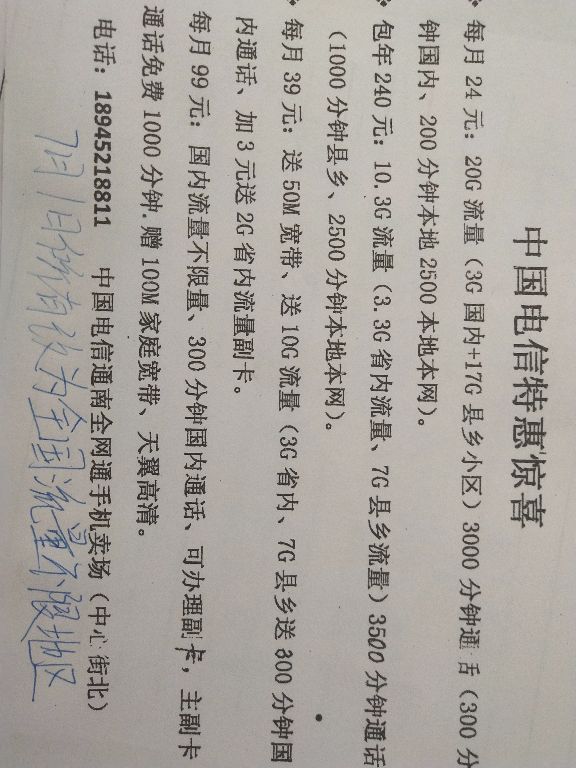 中国电信特惠惊喜
每月 24 元：20G 流量（3G 国内+17G 县乡小区）3000 分钟通话（300 分
钟国内、200 分钟本地 2500 本地本网）。
包年 240 元：10.3G 流量（3.3G 省内流量、7G 县乡流量）3500 分钟通话
（1000 分钟县乡、2500 分钟本地本网）。
每月 39 元：送 50M 宽带、送 10G 流量（3G 省内、7G 县乡送 300 分钟国
内通话、加 3 元送 2G 省内流量副卡。
每月 99 元：国内流量不限量、300 分钟国内通话、可办理副卡，主副卡
通话免费 1000 分钟.赠 100M 家庭宽带、天翼高清。
电话：18945218811 中国电信通南全网通手机卖场（中心街北）
7月1日新省改为全国流量不限地区